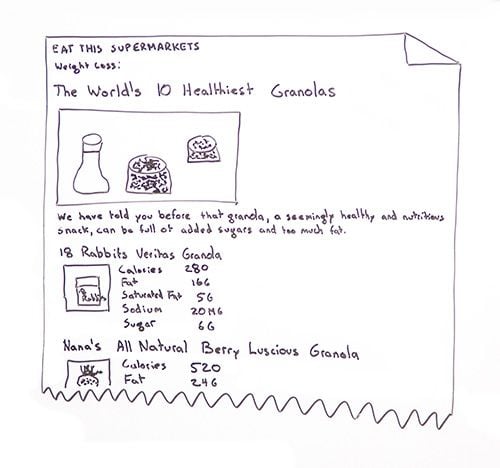 EAT THIS SUPERMARKETS
Weight Loss:
The World's 10 Healthiest Granolas
We have told you before that granola, a seemingly healthy and nutritious
snack, can be full of added sugars and too much fat.
18 Rabbits Veritas Granola
Calories 280
Fat 16G
Saturated Fat 5G
Sodium 20MG
Sugar 6G
Nana's All Natural Berry Luscious Granola
Calories 520
Fat 24G